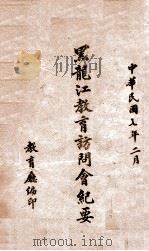 中華民國九年二月
黑龍江教育訪問會紀要
教育廳編印